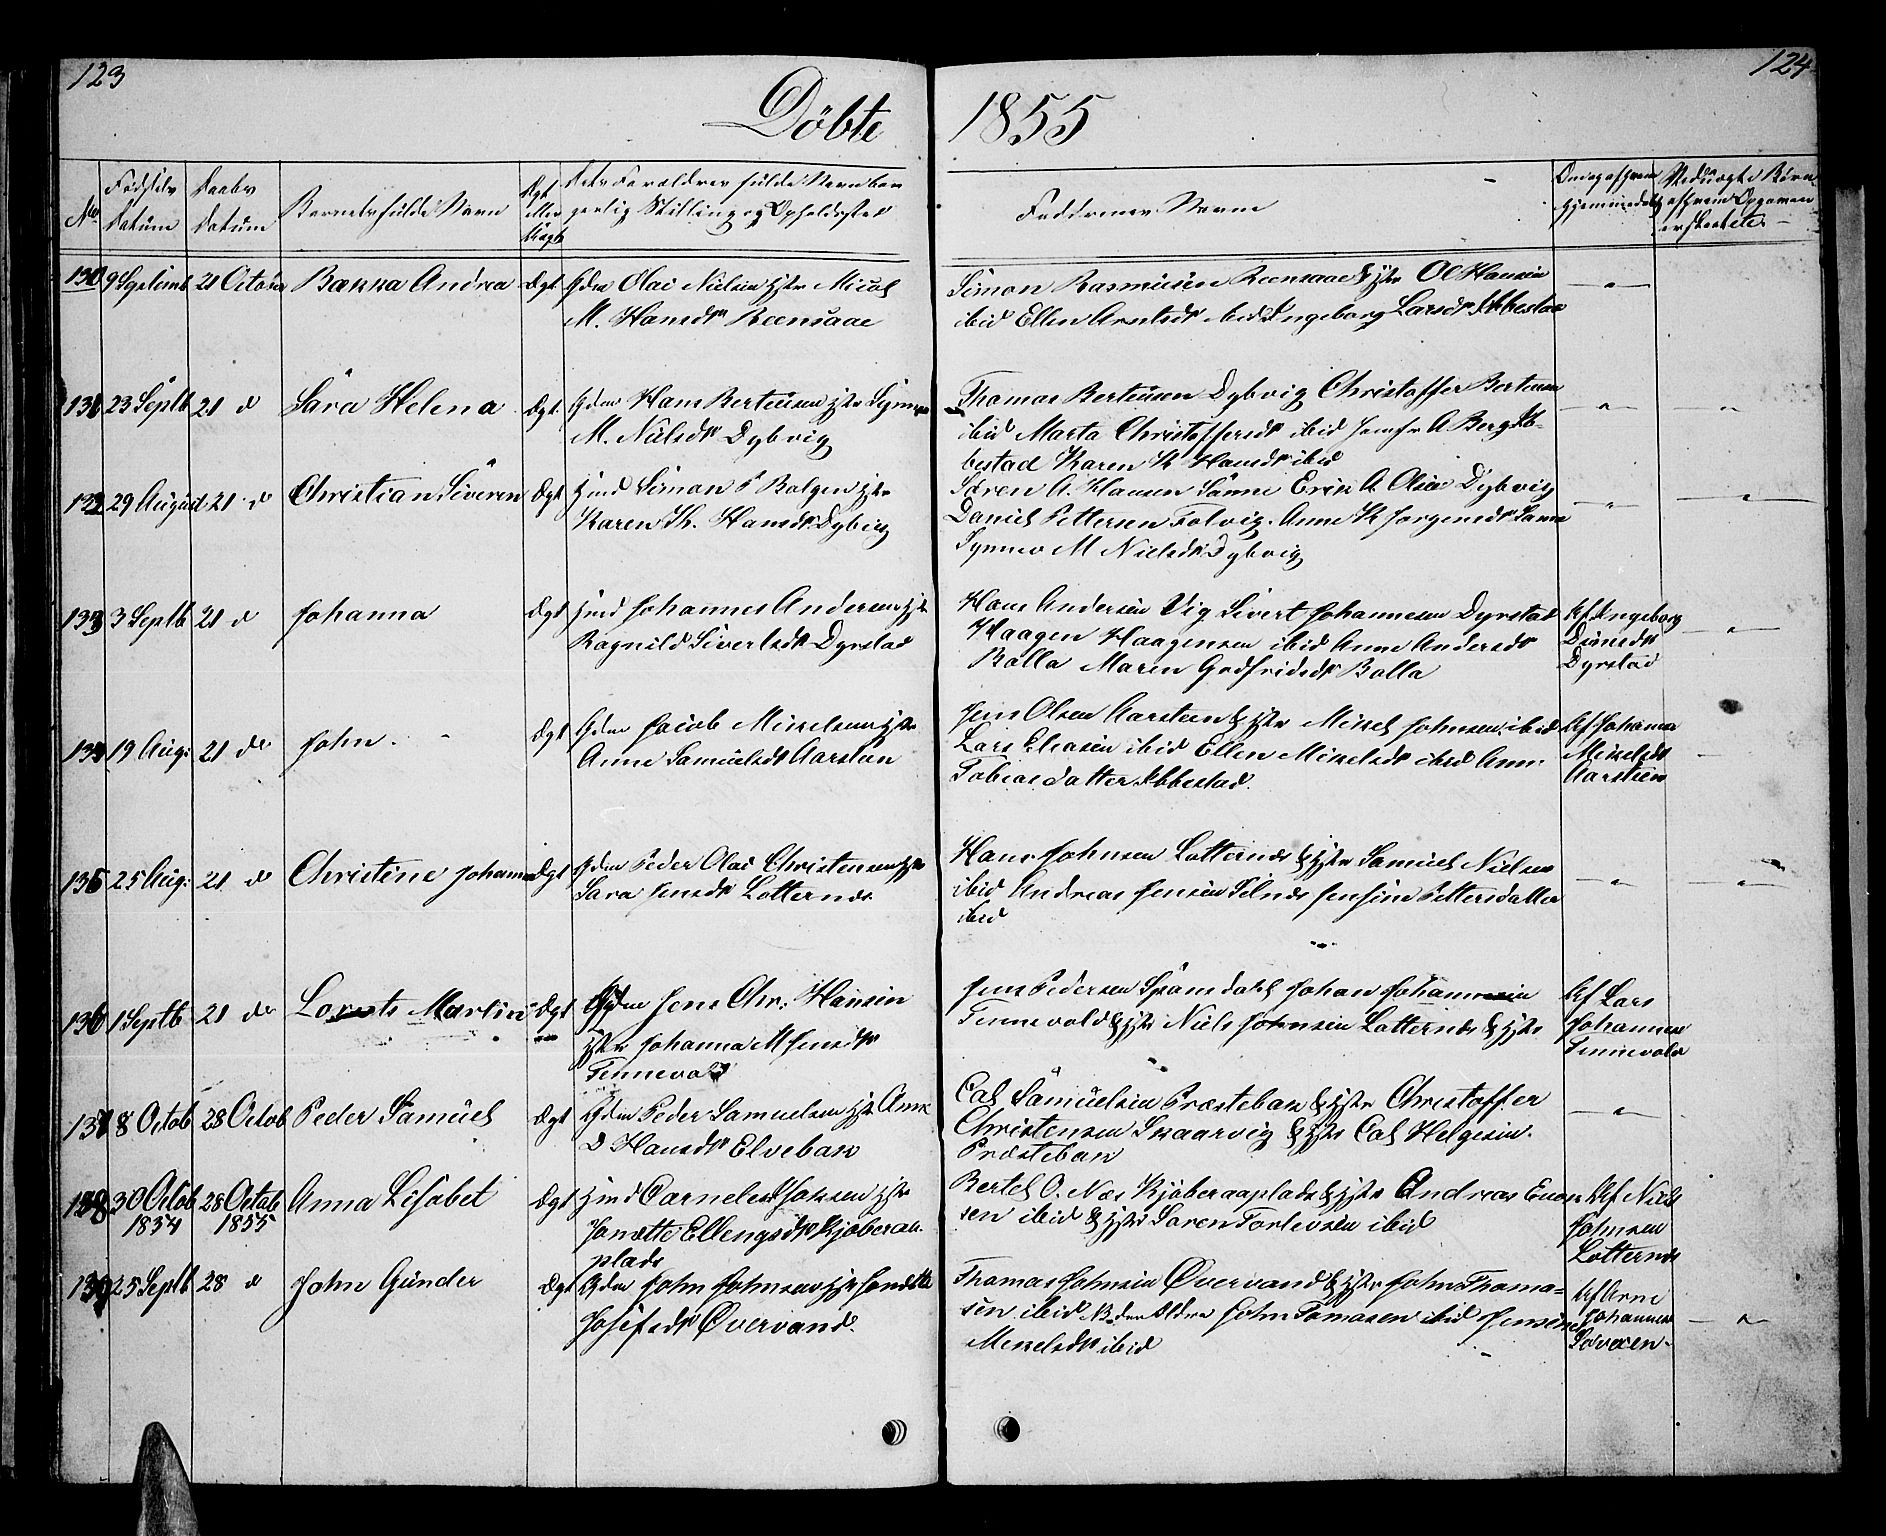 123
124
Döbte 1855
No
Födsels Datum
Daabs datum
Barnets fulde Navn
Ægt eller Uægte
Dets Forældres fulde Navn bor gerlig Stilling og Opholdssted
Faddrenes Navn
vedtagte Børn
130 9 Septemb 21 Octobr Bærra Andrea Ægt Gdm Olai Nielsen Hstr
M. Hansdr Reensaae
Simon Rasmusen Reensaae & Hstr Ol Hansen
ibid Ellen Arntsdr ibid Ingeborg Larsdr Ibbestad
131 23 Septb 21 d Sara Helena Ægt Gdm Hans Berteusen Hstr
M. Nielsdr Dybvig
Thomas Berteusen Dybvig Christoffer Berteusen
ibid Marta Christoffersdr ibid Jomfr A Berg Ib-
bestad Karen K Hansdr ibid
132 29 August 21 d Christian Siveren Ægt Hmd Simon P Bolgen Hstr
Karen K. Hansdr Dybvig
Sören A. Hansen Sanne Erik A Olsen Dybvig
Daniel Pettersen Folvig. Anne K Jorgensdr Sanne
Synnev M Nielsdr Dybvig
133 3 Septb 21 d Johanna Ægt Hmd Johannes Andersen Hstr
Ragnild Sivertsdr Dyrstad
Hans Andersen Vig Sivert Johannesen Dyrstad
Haagen Haagensen ibid Anne Andersdr
Rolla Maren Godfridsdr Rolla
Af Ingeborg
Dyrstad
134 19 Aug: 21 de John. Ægt Gdm Jacob Mikelsen Hstr
Anne Samuelsdr Aarsten
Jens Olsen Aarsteen & Hstr Mikel Johnsen ibid
Lars Eliasen ibid Ellen Mikelsdr ibid Anne
Tobias datter Ibbestad.
Af Johanna
Mikelsdr
Aarstein
135 25 Aug: 21 d Christine Johanna Ægt Gdm Peder Olai Christensen Hstr
Sara Jensdr Lotternds
Hans Johnsen Lotternds & Hstr Samuel Nielsen
ibid Andreas Jensen Silnds Jensine Pettersdatter
ibid
136 1 Septb 21 de Lorents Martin Ægt Gdm Jens Chr. Hansen
Hstr Johanna M Jensdr
Tennevold
Jens Pedersen Spansdahl Johan Johannesen
Tennevold & Hstr Niels Johnsen Lotternds & Hstr
Af Lars
Johannese
Tennevold
137 8 Octob 28 Octob Peder Samuel Ægt Gdm Peder Samuelsen Hstr Anne
D Hansdr Elvebak
Cal Samuelsen Præstebak & Hstr Christoffer
Christensen Skaarvig & Hstr Cal Helgesen.
Præstebak
138 30 Octob 28 Octob Anna Lisabet Ægt Hmd Carneles Hansen Hstr
1854 1855
Janette Ellengsdr Kjöberaa
plads
Bertel O. Næs Kjöberaaplads & Hstr Andreas Enok
sen ibid & Hstr Saren Torlevsen ibid
Af Niels
Johnsen
Lotternds
139 25 Septb 28 d John Günder Ægt Gdm John Johnsen Hstr
Josefsdr Övervand.
Thomas Johnsen Övervand & Hstr John Thoma-
sen ibid John Tomasen ibid Jensine
Mikelsdr ibid
Af Arne
Johannese